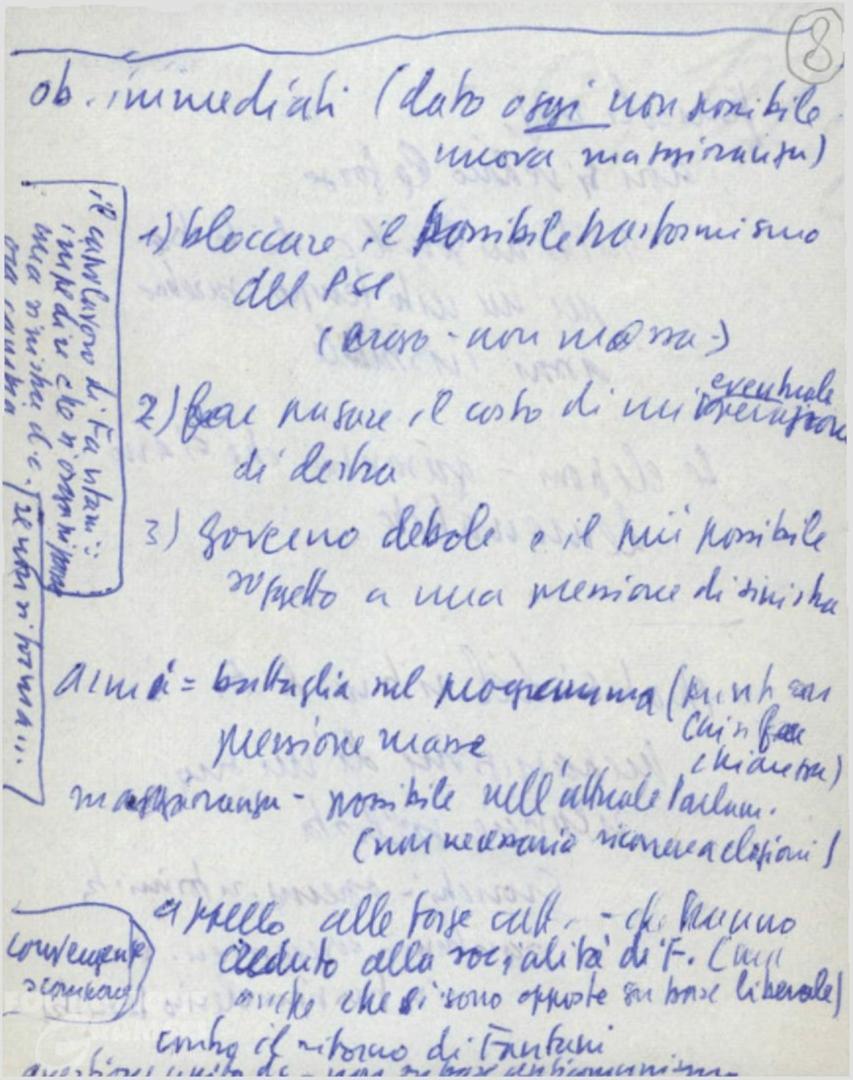 8
ob. immediati (dato oggi non possibile
nuova maggioranza)
1) bloccare il possibile trasformismo
del PSI
( - non mossa -)
2) far pagare il costo di un' eventuale operazione
di destra
3) governo debole e il più possibile
soggetto a una pressione di sinistra
il capolavoro di Fanfani:
impedire che si organizzasse
una sinistra d.c.
se non si forma...
arma = battaglia sul programma (
pressione masse chi si fa
chiarezza)
maggioranza - possibile nell'attuale Parlam.
(non necessario ricorrere a elezioni)
appello alle forze catt. - che hanno
creduto alla socialità di F. (ma
anche che si sono opposte su base liberale)
contro il ritorno di Fanfani
convergenze
- non su base anticomunismo